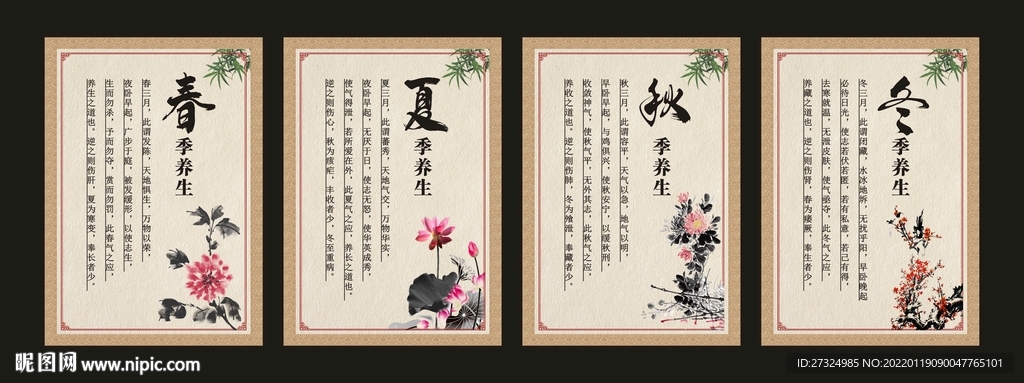 春
季养生
春三月，此谓发陈，天地惧生，万物以荣，
夜卧早起，广步于庭，被发缓形，以使志生，
生而勿杀，予而勿夺，赏而勿罚，此春气之应，
养生之道也。逆之则伤肝，夏为寒变，奉长者少。
夏
季养生
夏三月，此谓蕃秀，天地气交，万物华实，
夜卧早起，无厌于日，使志无怒，使华英成秀，
使气得泄，若所爱在外，此夏气之应，养长之道也。
逆之则伤心，秋为痎疟，丰收者少，冬至重病。
秋
季养生
秋三月，此谓容平，天气以急，地气以明，
早卧早起，与鸡俱兴，使秋安宁，以缓秋刑，
收敛神气，使秋气平，无外其志，此秋气之应，
养收之道也。逆之则伤肺，冬为飧泄，奉藏者少。
冬
季养生
冬三月，此谓闭藏，水冰地坼，无扰乎阳，早卧晚起
必待日光，使志若伏若匿，若有私意，若己有得，
去寒就温，无泄皮肤，使气亟夺，此冬气之应，
养藏之道也，逆之则伤肾，春为痿厥，奉生者少。
昵图网 www.nipic.com
ID:27324985 NO:20220119090047765101